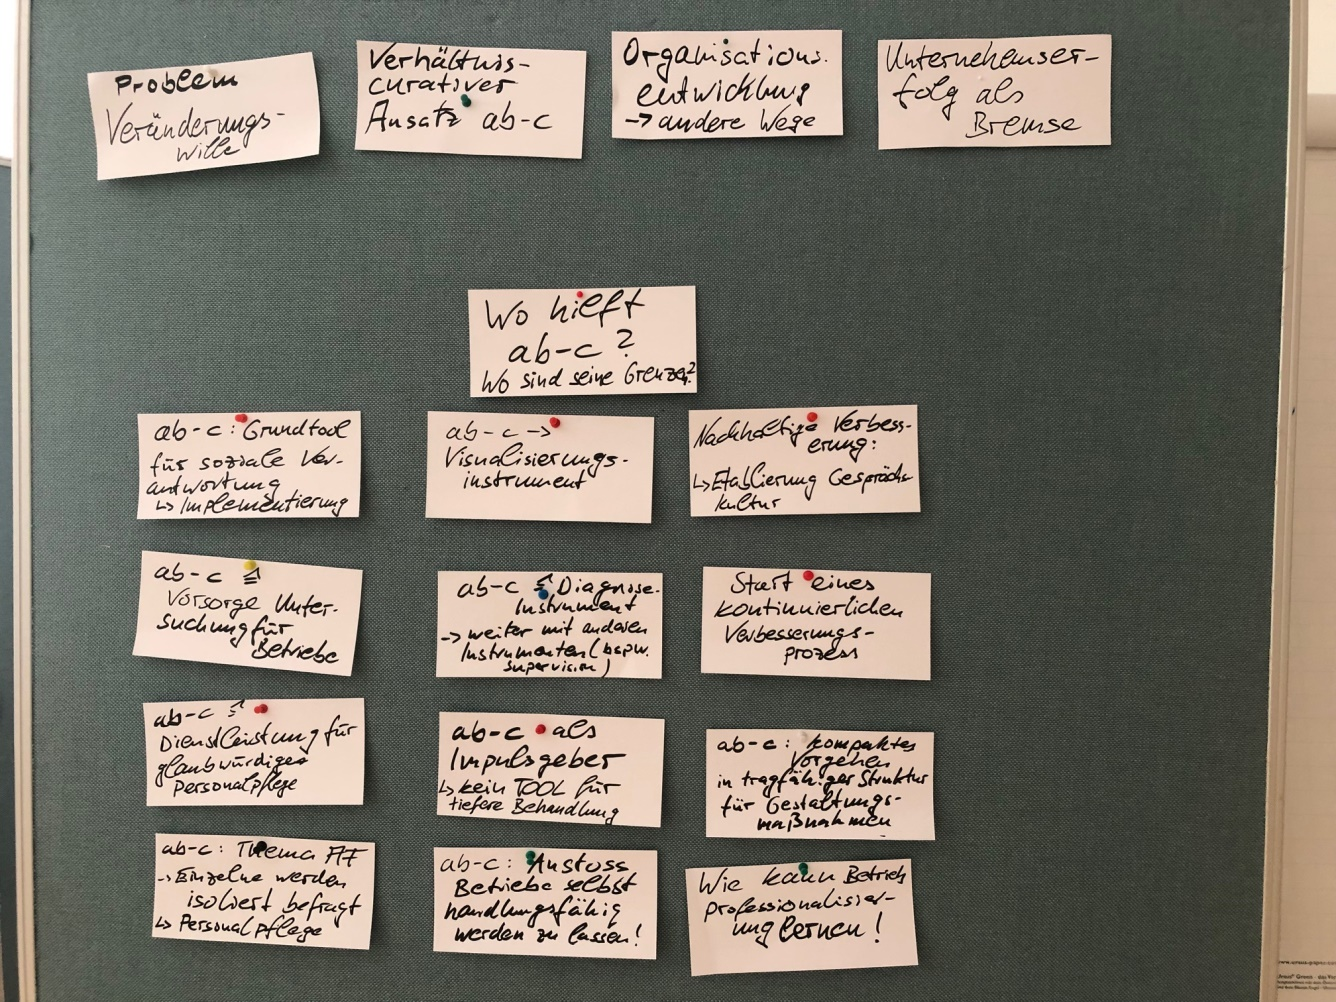 Problem
Veränderungs-
wille
Verhältnis-
curativer
Ansatz ab-c
Organisations-
entwicklung
→ andere Wege
Unternehmenser-
folg als
Bremse
Wo hilft
ab-c?
Wo sind seine Grenzen?
ab-c: Grundtool
für soziale Ver-
antwortung
↳ Implementierung
ab-c →
Visualisierungs-
instrument
Nachhaltige Verbess-
erung:
↳ Etablierung Gesprächs-
kultur
ab-c ≙
Vorsorge Unter-
suchung für
Betriebe
ab-c ≙ Diagnose-
Instrument
→ weiter mit anderen
Instrumenten (bspw.
Supervision)
Start eines
kontinuierlichen
Verbesserungs-
prozess
ab-c ≙
Dienstleistung für
glaubwürdige
Personalpflege
ab-c als
Impulsgeber
↳ kein TOOL für
tiefere Behandlung
ab-c: kompaktes
Vorgehen
in tragfähiger Struktur
für Gestaltungs-
maßnahmen
ab-c: Thema AF
→ Einzelne werden
isoliert befragt
↳ Personalpflege
ab-c: Anstoss
Betriebe selbst
handlungsfähig
werden zu lassen!
Wie kann Betrieb
professionalisier-
ung lernen!